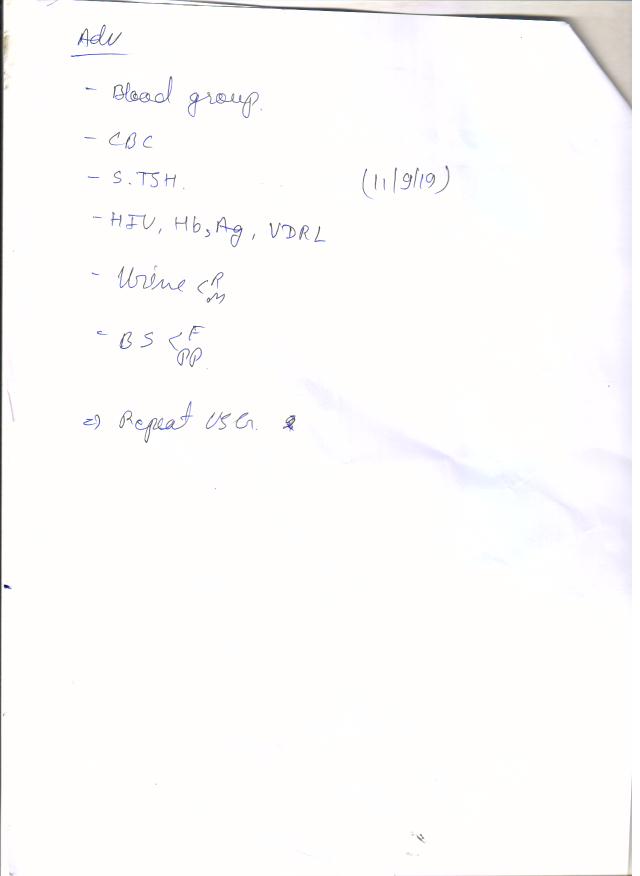 Adv
- Blood group.
- CBC
- S.TSH. (11/9/19)
- HIV, Hb,Ag, VDRL
- Urine < R
M
- BS < F
PP
=> Repeat USG.